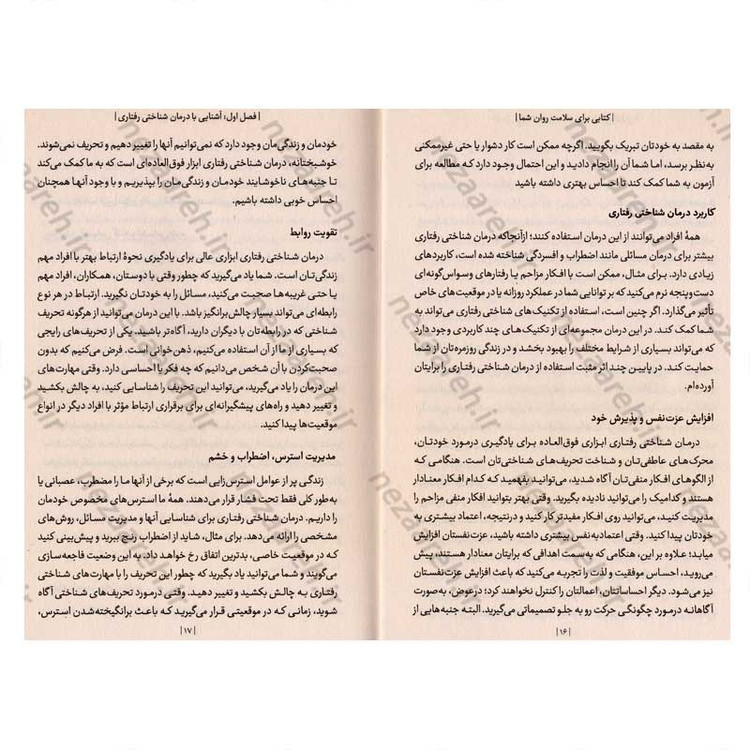 | کتابی برای سلامت روان شما |
به مقصد به خودتان تبریک بگویید. اگرچه ممکن است کار دشوار یا حتی غیرممکنی
به‌نظر برسد، اما شما آن را انجام دادید و این احتمال وجود دارد که مطالعه برای
آزمون به شما کمک کند تا احساس بهتری داشته باشید
کاربرد درمان شناختی رفتاری
همهٔ افراد می‌توانند از این درمان استفاده کنند؛ ازآنجاکه درمان شناختی رفتاری
بیشتر برای درمان مسائلی مانند اضطراب و افسردگی شناخته شده است، کاربردهای
زیادی دارد. برای مثال، ممکن است با افکار مزاحم یا رفتارهای وسواس‌گونه‌ای
دست‌وپنجه نرم می‌کنید که بر توانایی شما در عملکرد روزانه یا در موقعیت‌های خاص
تأثیر می‌گذارد. اگر چنین است، استفاده از تکنیک‌های شناختی رفتاری می‌تواند به
شما کمک کند. در این درمان مجموعه‌ای از تکنیک‌های چند کاربردی وجود دارد
که می‌تواند بسیاری از شرایط مختلف را بهبود بخشد و در زندگی روزمره‌تان از شما
حمایت کند. در پایین چند اثر مثبت استفاده از درمان شناختی رفتاری را برایتان
آورده‌ام.
افزایش عزت‌نفس و پذیرش خود
درمان شناختی رفتاری ابزاری فوق‌العاده برای یادگیری درمورد خودتان،
محرک‌های عاطفی‌تان و شناخت تحریف‌های شناختی‌تان است. هنگامی که
از الگوهای افکار منفی‌تان آگاه شدید، می‌توانید بفهمید که کدام افکار معنادار
هستند و کدامیک را می‌توانید نادیده بگیرید. وقتی بهتر بتوانید افکار منفی مزاحم را
مدیریت کنید، می‌توانید روی افکار مفیدتر کار کنید و درنتیجه، اعتماد بیشتری به
خودتان پیدا کنید. وقتی اعتمادبه‌نفس بیشتری داشته باشید، عزت‌نفستان افزایش
میابد؛ علاوه بر این، هنگامی که به‌سمت اهدافی که برایتان معنادار هستند، پیش
می‌روید، احساس موفقیت و لذت را تجربه می‌کنید که باعث افزایش عزت‌نفستان
نیز می‌شود. دیگر احساساتتان، اعمالتان را کنترل نخواهند کرد؛ درعوض، به‌صورت
آگاهانه درمورد چگونگی حرکت رو به جلو تصمیماتی می‌گیرید. البته جنبه‌هایی از
| ۱۶ |
| فصل اول: آشنایی با درمان شناختی رفتاری |
خودمان و زندگی‌مان وجود دارد که نمی‌توانیم آنها را تغییر دهیم و تحریف نمی‌شوند.
خوشبختانه، درمان شناختی رفتاری ابزار فوق‌العاده‌ای است که به ما کمک می‌کند
تا جنبه‌های ناخوشایند خودمان و زندگی‌مان را بپذیریم و با وجود آنها همچنان
احساس خوبی داشته باشیم.
تقویت روابط
درمان شناختی رفتاری ابزاری عالی برای یادگیری نحوهٔ ارتباط بهتر با افراد مهم
زندگی‌تان است. شما یاد می‌گیرید که چطور وقتی با دوستان، همکاران، افراد مهم
یا حتی غریبه‌ها صحبت می‌کنید، مسائل را به خودتان نگیرید. ارتباط در هر نوع
رابطه‌ای می‌تواند بسیار چالش‌برانگیز باشد. با این درمان می‌توانید از هرگونه تحریف
شناختی که در رابطه‌تان با دیگران دارید، آگاه‌تر باشید. یکی از تحریف‌های رایجی
که بسیاری از ما از آن استفاده می‌کنیم، ذهن‌خوانی است. فرض می‌کنیم که بدون
صحبت‌کردن با آن شخص می‌دانیم که چه فکر یا احساسی دارد. وقتی مهارت‌های
این درمان را یاد می‌گیرید، می‌توانید این تحریف را شناسایی کنید، به چالش بکشید
و تغییر دهید و راه‌های پیشگیرانه‌ای برای برقراری ارتباط مؤثر با افراد دیگر در انواع
موقعیت‌ها پیدا کنید.
مدیریت استرس، اضطراب و خشم
زندگی پر از عوامل استرس‌زایی است که برخی از آنها ما را مضطرب، عصبانی یا
به‌طور کلی فقط تحت فشار قرار می‌دهند. همهٔ ما استرس‌های مخصوص خودمان
را داریم. درمان شناختی رفتاری برای شناسایی آنها و مدیریت مسائل، روش‌های
مشخصی را ارائه می‌دهد. برای مثال، شاید از اضطراب رنج ببرید و پیش‌بینی کنید
که در موقعیت خاصی، بدترین اتفاق رخ خواهد داد. به این وضعیت فاجعه‌سازی
می‌گویند و شما می‌توانید یاد بگیرید که چطور این تحریف را با مهارت‌های شناختی
رفتاری به چالش بکشید و تغییر دهید. وقتی درمورد تحریف‌های شناختی آگاه
شوید، زمانی که در موقعیتی قرار می‌گیرید که باعث برانگیخته‌شدن استرس،
| ۱۷ |
nezaareh.ir